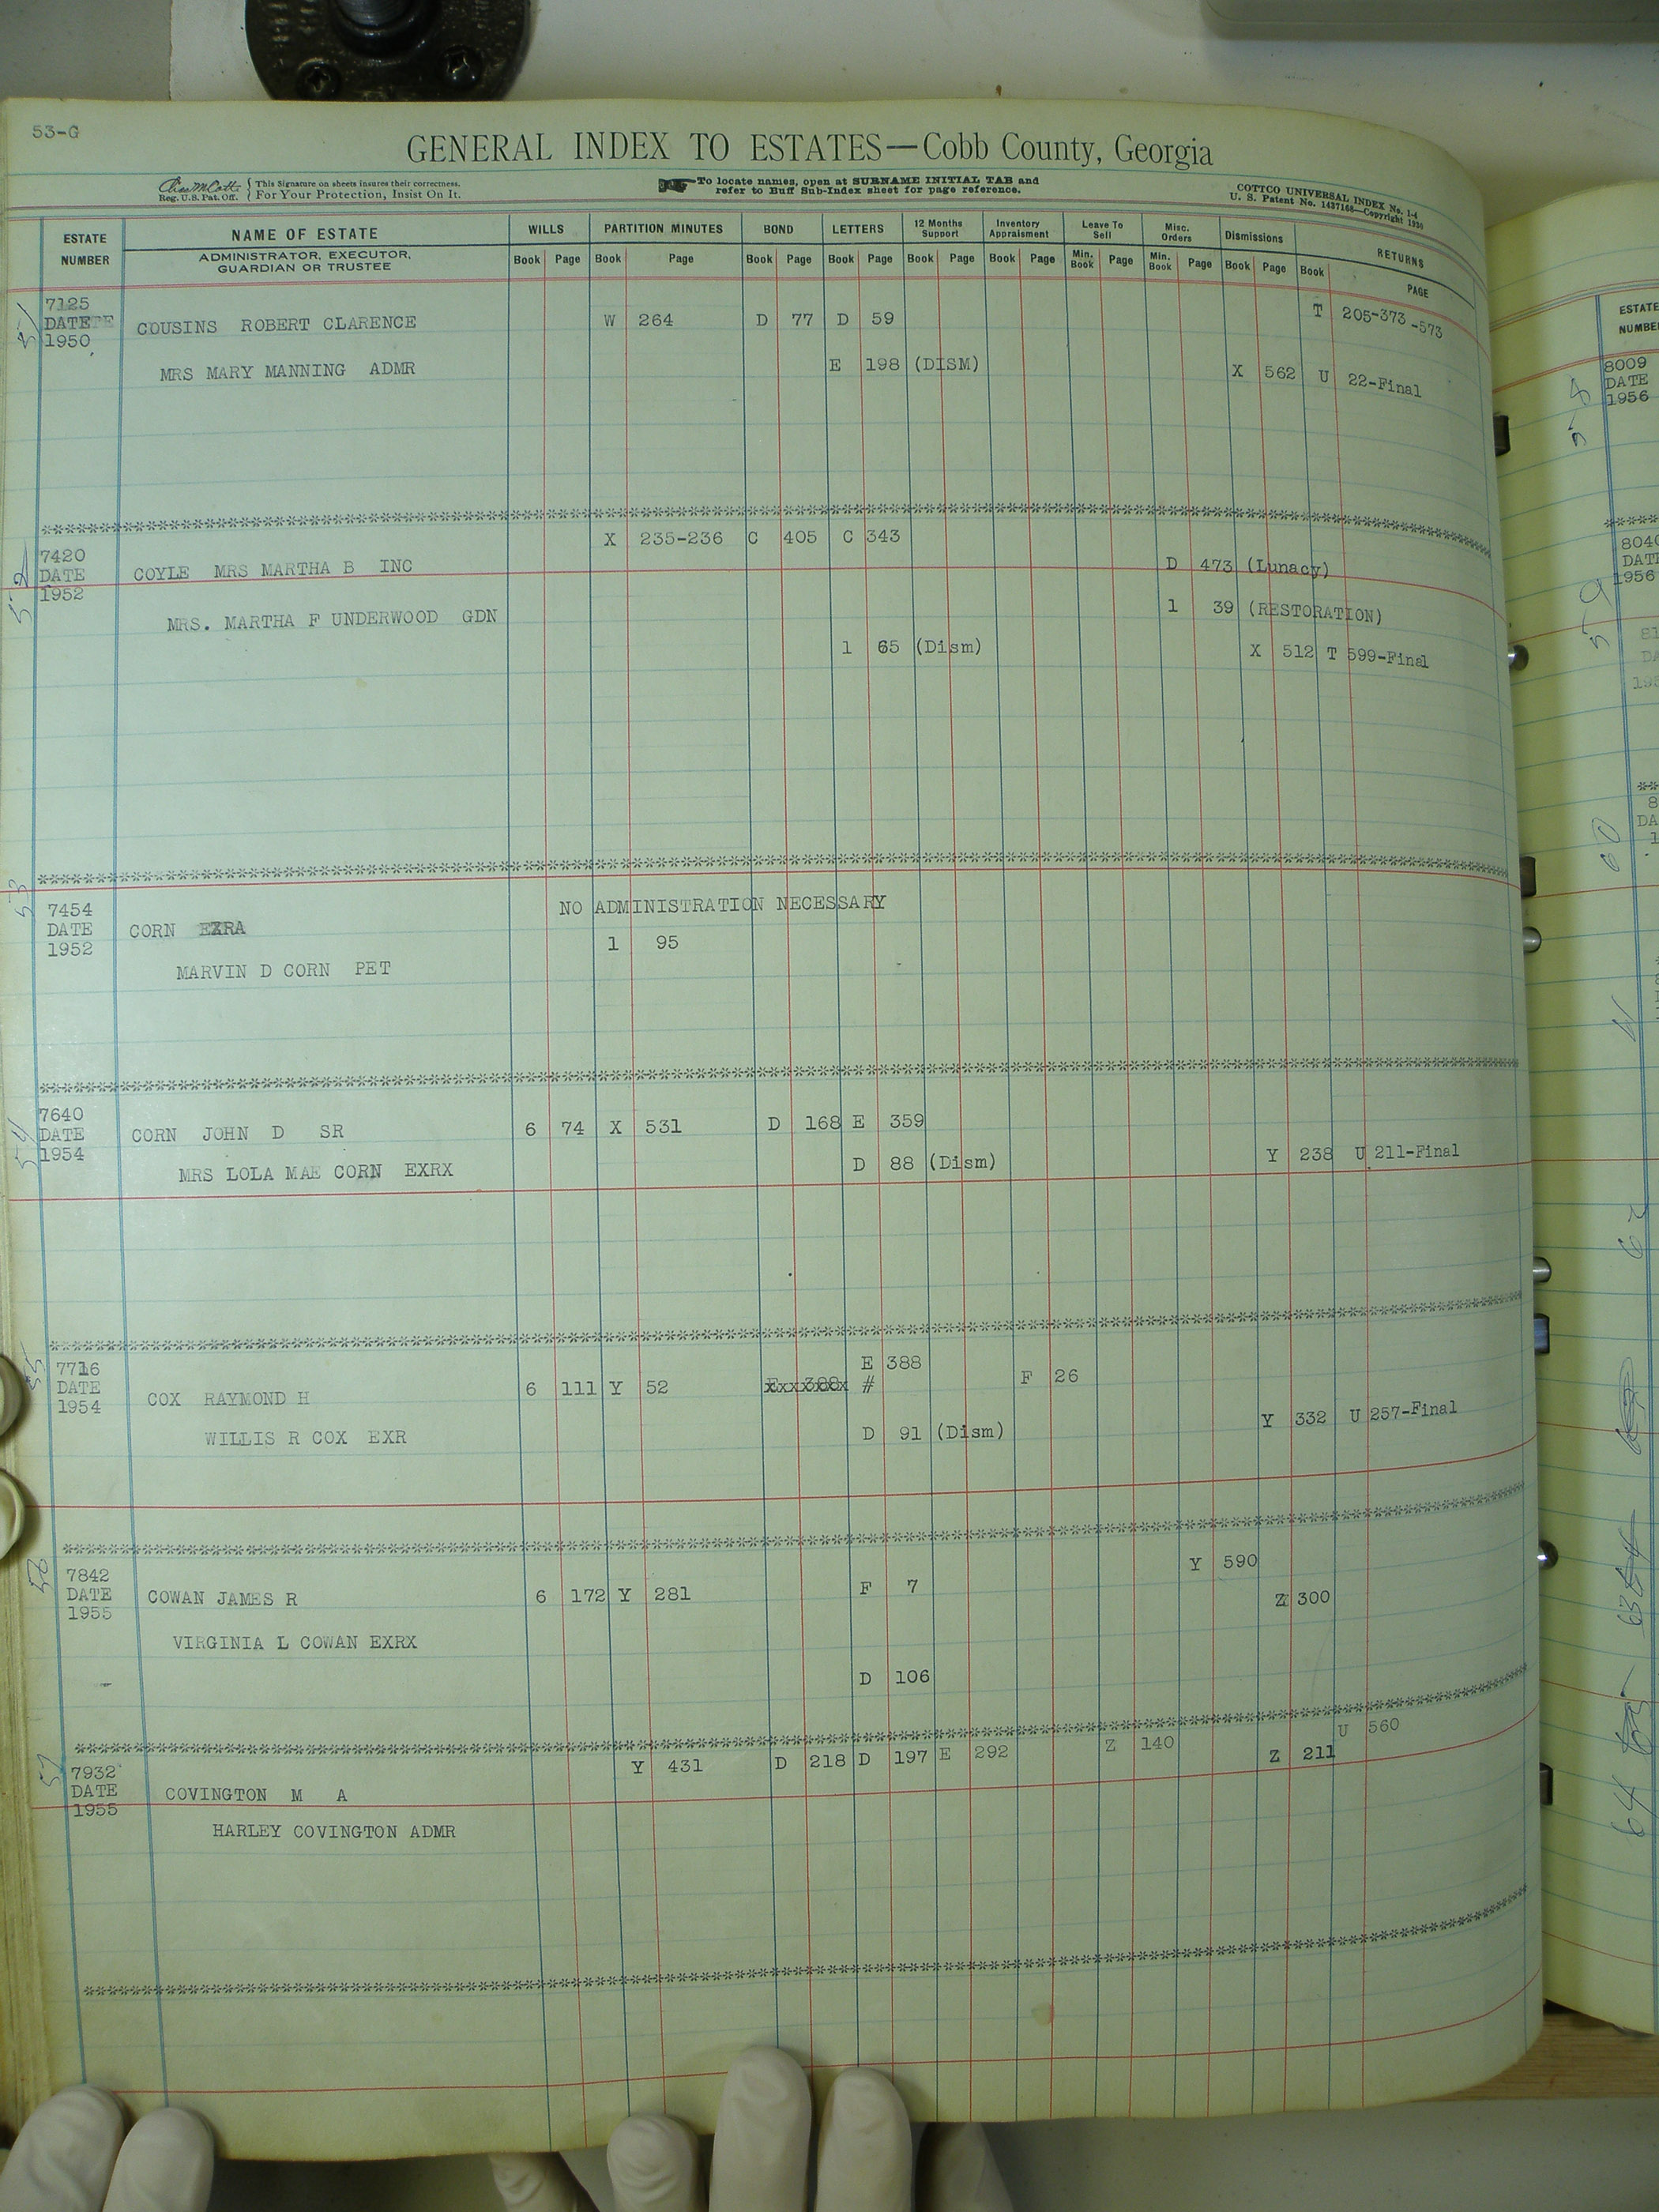 53-G
GENERAL INDEX TO ESTATES—Cobb County, Georgia
Reg. U.S. Pat. Off. { This Signature on sheets insures their correctness. For Your Protection, Insist On It.
To locate names, open at SURNAME INITIAL TAB and
refer to Buff Sub-Index sheet for page reference.
COTTCO UNIVERSAL INDEX No. 1-4
U. S. Patent No. 1437168—Copyright 1936
ESTATE NUMBER
NAME OF ESTATE
ADMINISTRATOR, EXECUTOR,
GUARDIAN OR TRUSTEE
WILLS PARTITION MINUTES BOND LETTERS 12 Months Support Inventory Appraisment Leave To Sell Misc. Orders Dismissions RETURNS
Book Page Book Page Book Page Book Page Book Page Book Page Min. Book Page Min. Book Page Book Page Book PAGE
51
7125
DATE
1950
COUSINS ROBERT CLARENCE W 264 D 77 D 59 T 205-373-573
MRS MARY MANNING ADMR E 198 (DISM) X 562 U 22-Final
52
7420
DATE
1952
X 235-236 C 405 C 343
COYLE MRS MARTHA B INC D 473 (Lunacy)
MRS. MARTHA F UNDERWOOD GDN 1 39 (RESTORATION)
1 65 (Dism) X 512 T 599-Final
53
7454
DATE
1952
NO ADMINISTRATION NECESSARY
CORN EZRA 1 95
MARVIN D CORN PET
54
7640
DATE
1954
CORN JOHN D SR 6 74 X 531 D 168 E 359
MRS LOLA MAE CORN EXRX D 88 (Dism) Y 238 U 211-Final
55
7716
DATE
1954
E 388
COX RAYMOND H 6 111 Y 52 # F 26
WILLIS R COX EXR D 91 (Dism) Y 332 U 257-Final
56
7842
DATE
1955
Y 590
COWAN JAMES R 6 172 Y 281 F 7 Z 300
VIRGINIA L COWAN EXRX
D 106
57
7932
DATE
1955
U 560
Y 431 D 218 D 197 E 292 Z 140 Z 211
COVINGTON M A
HARLEY COVINGTON ADMR
ESTATE
NUMBE
58
8009
DATE
1956
59
8040
DATE
1956
60
62
64